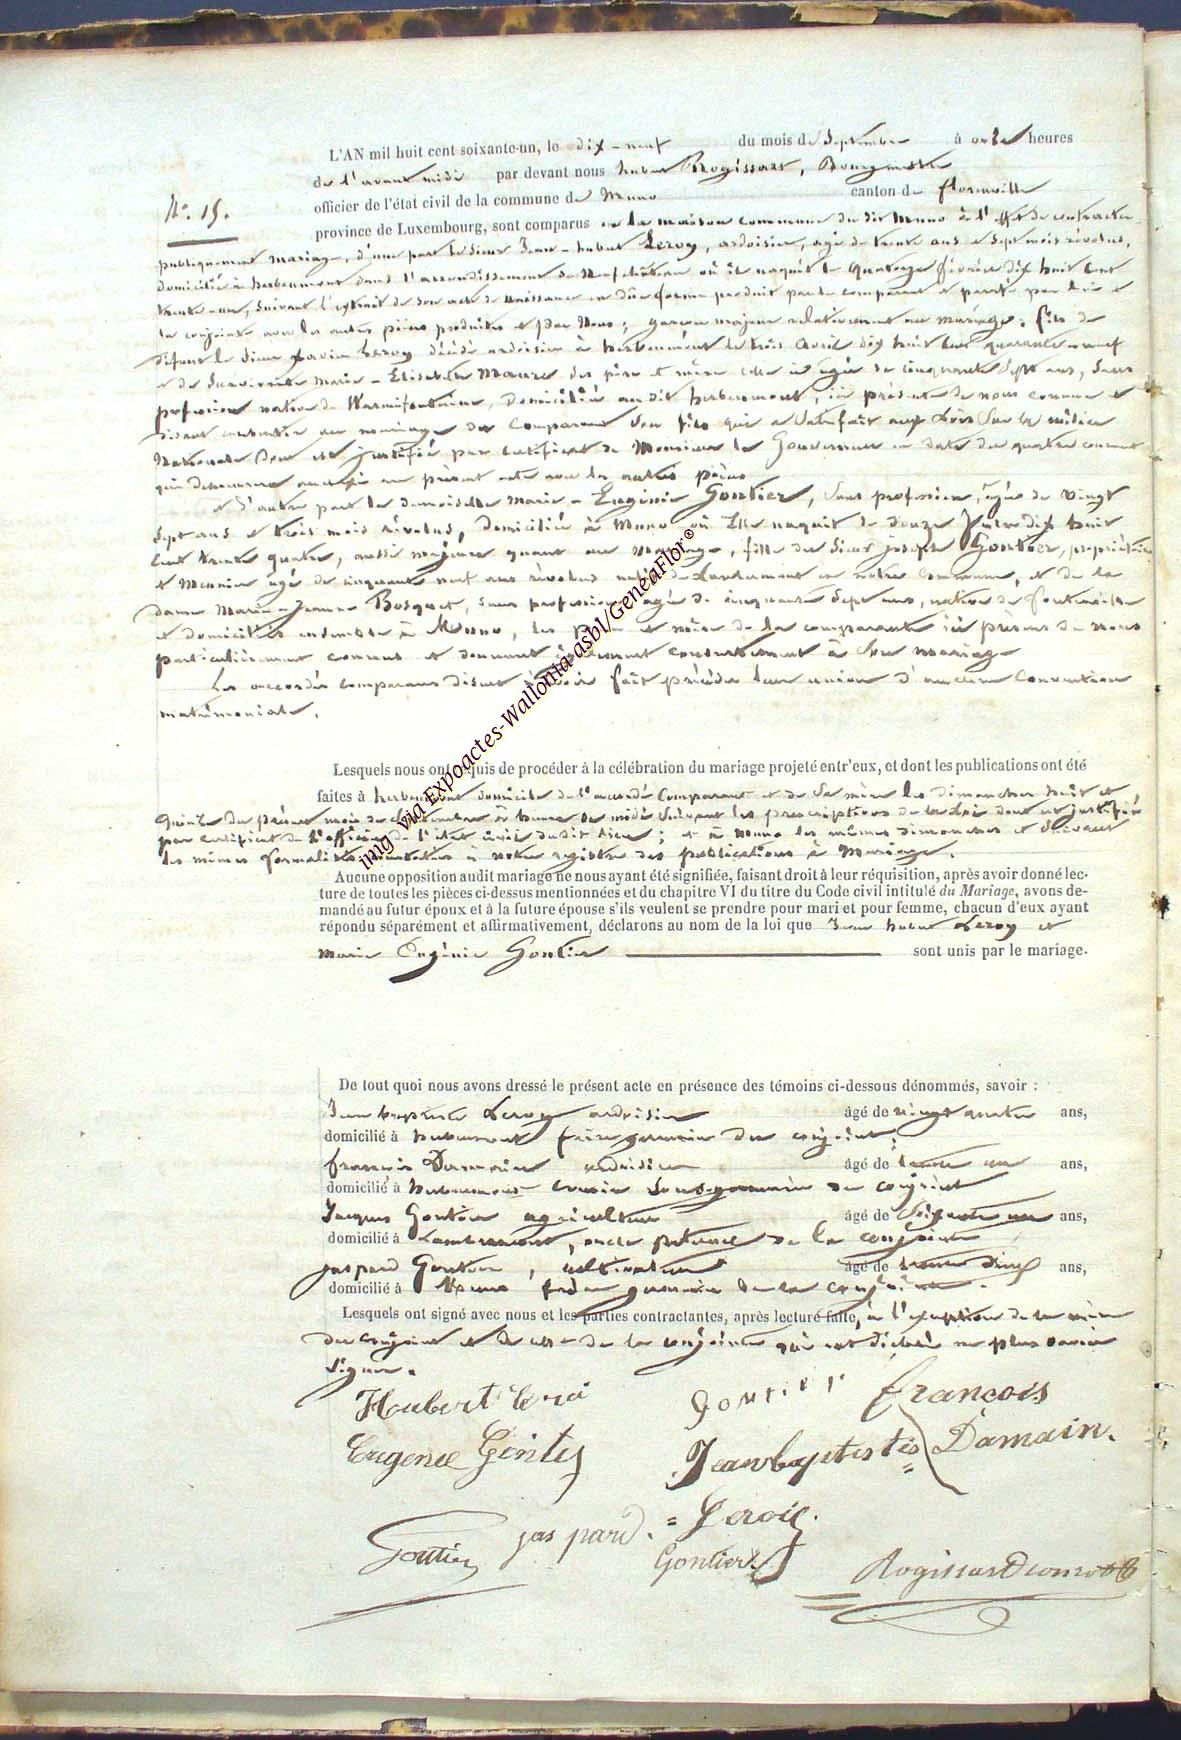 L'AN mil huit cent soixante-un, le dix-neuf du mois de Septembre à onze heures
de l'avant midi par devant nous hubert Rogissart, Bourgmestre
officier de l'état civil de la commune de Muno canton de florenville
N.° 15.
province de Luxembourg, sont comparus en la maison commune du dit Muno à l'effet de contracter
publiquement mariage, d'une part le Sieur Jean-hubert Leroy, ardoisier, agé de trente ans et Sept mois révolus,
domicilié à herbeumont dans l'arrondissement de Neufchâteau où il naquit le quatorze février dix huit cent
trente-un, Suivant l'extrait de Son acte de Naissance en due forme produit par le comparant et par lui et
la conjointe avec les autres pièces produites et par Nous; garçon majeur relativement au mariage; fils de
défunt le Sieur Leroy décédé ardoisier à herbeumont le trois Avril dix huit cent quarante-neuf
et de Survivante Marie-Elisabeth des père et mère celle ci agée de Cinquante Sept ans, Sans
profession native de Warmifontaine, Domiciliée au dit herbeumont, ici présente de nous connue et
disant consentir au mariage du Comparant Son fils qui a Satisfait aux Lois Sur la milice
Nationale Dont est justifié par Certificat de Monsieur le Gouverneur en date du quatre courant
qui demeurera annexé au présent acte avec les autres pièces
et d'autre part la demoiselle Marie-Eugénie Gontier, Sans profession, agée de Vingt
Sept ans et trois mois révolus, Domiciliée à Muno où Elle naquit le douze dix huit
Cent trente quatre, aussi majeure quant au Mariage, fille du Sieur joseph Gontier, propriétaire
et Meunier agé de cinquante neuf ans révolus natif de Lambermont en notre Commune, et de la
dame Marie-Jeanne Bosquet, Sans profession agée de cinquante Sept ans, native de fontenoille
et domiciliés ensemble à Muno, les père et mère de la comparante ici présens de nous
particulièrement connus et donnant également consentement à Son mariage
Les accordés comparans disent n'avoir fait précéder leur union d'aucune Convention
matrimoniale.
Lesquels nous ont requis de procéder à la célébration du mariage projeté entr'eux, et dont les publications ont été
faites à herbeumont domicile de l'accordé Comparant et de Sa mère les dimanches huit et
quinze du présent mois de Septembre à heure de midi Suivant les prescriptions de la Loi dont est justifié
par certificat de l'officier de l'état civil dudit lieu; et à Muno les mêmes dimanches et Suivant
les mêmes formalités constatées à notre registre des publications à Mariage.
Aucune opposition audit mariage ne nous ayant été signifiée, faisant droit à leur réquisition, après avoir donné lec-
ture de toutes les pièces ci-dessus mentionnées et du chapitre VI du titre du Code civil intitulé du Mariage, avons de-
mandé au futur époux et à la future épouse s'ils veulent se prendre pour mari et pour femme, chacun d'eux ayant
répondu séparément et affirmativement, déclarons au nom de la loi que Jean hubert Leroy et
Marie Eugénie Gontier sont unis par le mariage.
De tout quoi nous avons dressé le présent acte en présence des témoins ci-dessous dénommés, savoir :
Jean baptiste Leroy ardoisier âgé de vingt quatre ans,
domicilié à herbeumont frère germain du conjoint;
françois Damain ardoisier âgé de trente un ans,
domicilié à herbeumont cousin Sous-germain du conjoint
Jacques Gontier agriculteur âgé de Soixante un ans,
domicilié à Lambermont, oncle paternel de la conjointe
gaspard Gontier, cultivateur âgé de trente deux ans,
domicilié à Muno frère germain de la conjointe.
Lesquels ont signé avec nous et les parties contractantes, après lecture faite, à l'exception de la mère
du Conjoint et de celle de la conjointe qui ont déclaré ne Savoir
Signer.
Houbert Leroi gontier francois
Eugenie Gontier Jeanbaptiste Damain.
Gontier gaspard. = Leroi.
Gontier Rogissart
img via Expoactes-Wallonia asbl/GeneaFlor®